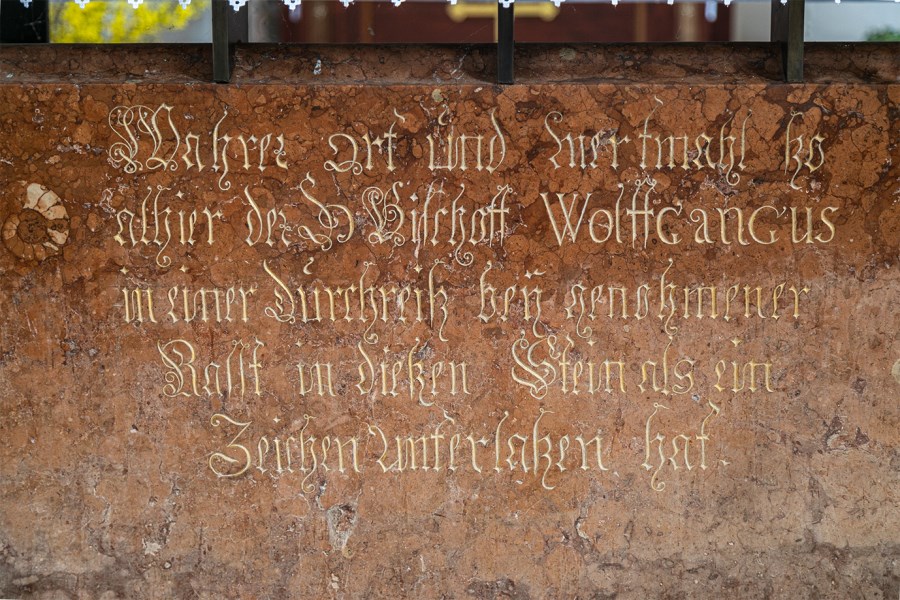 Wahrer Ort und mertmahl ſo
alhier der H Biſchoff WolffGANGUS
in einer Durchreiß beÿ genohmener
Raſt in dießen Stein als ein
Zeichen unterlaßen hat.